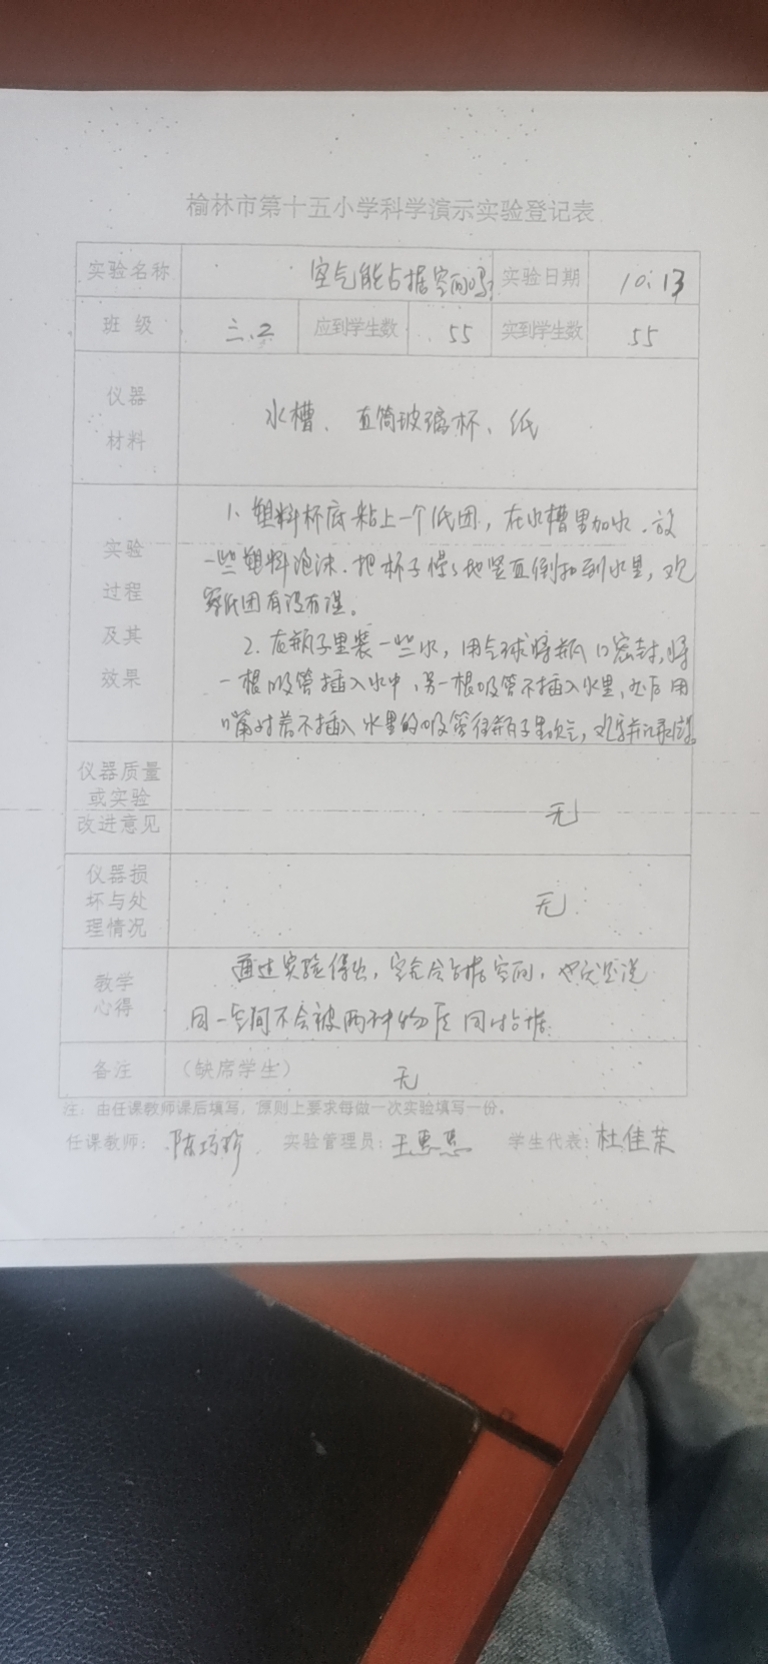 榆林市第十五小学科学演示实验登记表
实验名称 空气能占据空间吗? 实验日期 10.13
班 级 三.2 应到学生数 55 实到学生数 55
仪器
材料
水槽、直筒玻璃杯、纸
实验
过程
及其
效果
1、塑料杯底粘上一个纸团,在水槽里加水.放
一些塑料泡沫.把杯子慢慢地竖直倒扣到水里,观
察纸团有没有湿。
2.在瓶子里装一些水,用气球将瓶口密封,将
一根吸管插入水中,另一根吸管不插入水里,然后用
嘴对着不插入水里的吸管往瓶子里吹气,观察并记录
仪器质量
或实验
改进意见
无
仪器损
坏与处
理情况
无
教学
心得
通过实验得出,空气会占据空间,
同一空间不会被两种物质同时占据.
备注 (缺席学生) 无
注:由任课教师课后填写,原则上要求每做一次实验填写一份。
任课教师: 陈巧珍 实验管理员: 王 学生代表: 杜佳茉